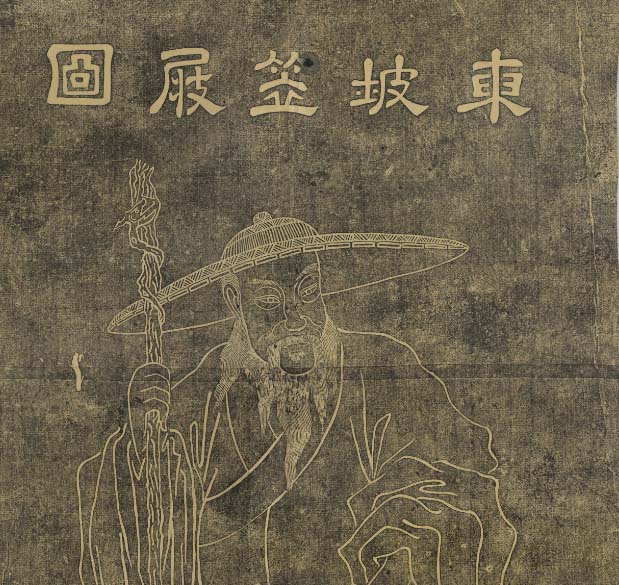 東坡笠屐圖